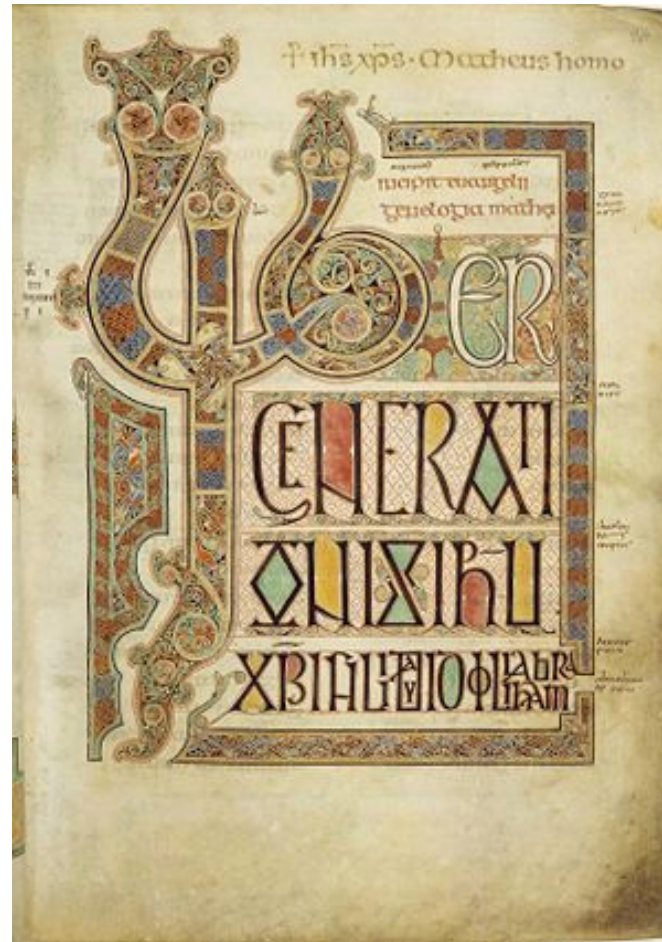 + ihs xps · Matheus homo
incipit euangelii
genelogia mathei
LIBER
GENERATI
ONIS IHU
XPI FILII DAVID FILII ABRA
HAM